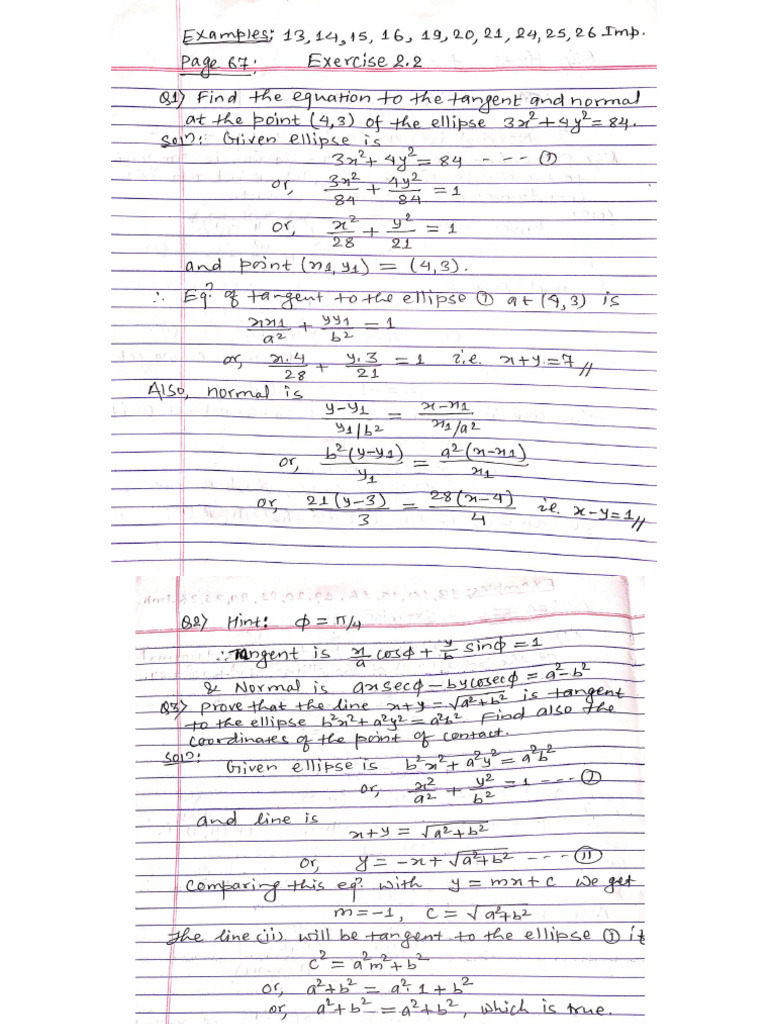 Examples: 13, 14, 15, 16, 19, 20, 21, 24, 25, 26 Imp.
Page 67: Exercise 2.2
Q1) Find the equation to the tangent and normal
at the point (4,3) of the ellipse 3x²+4y²=84.
Solⁿ: Given ellipse is
3x²+4y²=84 ---- (I)
or, 3x²/84 + 4y²/84 = 1
or, x²/28 + y²/21 = 1
and point (x₁,y₁) = (4,3).
∴ Eqⁿ of tangent to the ellipse (I) at (4,3) is
xx₁/a² + yy₁/b² = 1
or, x.4/28 + y.3/21 = 1 i.e. x+y=7//
Also, normal is
(y-y₁)/(y₁/b²) = (x-x₁)/(x₁/a²)
or, b²(y-y₁)/y₁ = a²(x-x₁)/x₁
or, 21(y-3)/3 = 28(x-4)/4 ie. x-y=1//
Q2) Hint: φ = π/4
∴ Tangent is x/a cosφ + y/b sinφ = 1
& Normal is ax secφ - by cosecφ = a²-b²
Q3) prove that the line x+y = √(a²+b²) is tangent
to the ellipse b²x²+a²y²=a²b². Find also the
coordinates of the point of contact.
Solⁿ:
Given ellipse is b²x²+a²y²=a²b²
or, x²/a² + y²/b² = 1 --- (I)
and line is
x+y = √(a²+b²)
or, y = -x+√(a²+b²) --- (II)
Comparing this eqⁿ with y = mx+c we get
m=-1, c=√(a²+b²)
The line (ii) will be tangent to the ellipse (I) if
c² = a²m²+b²
or, a²+b² = a².1+b²
or, a²+b² = a²+b², which is true.